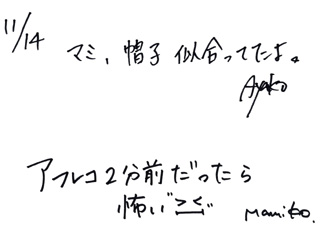 11/14
マミ、帽子 似合ってたよ。
Ayako
アフレコ2分前だったら
怖い ><
Mamiko.